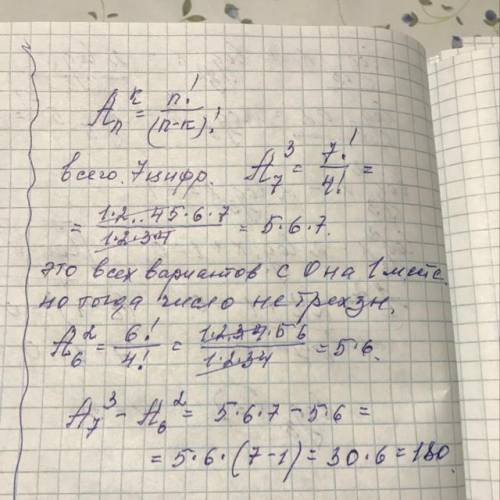 Aₙᵏ = n! / (n-k)!
всего 7 цифр. A₇³ = 7! / 4! =
= 1·2..45·6·7 / 1·2·34 = 5·6·7.
это всех вариантов с 0 на 1 мест.
но тогда число не трехзн.
A₆² = 6! / 4! = 1·2·3·4·5 6 / 1·2·34 = 5·6.
A₇³ - A₆² = 5·6·7 - 5·6 =
= 5·6·(7-1) = 30·6 = 180.